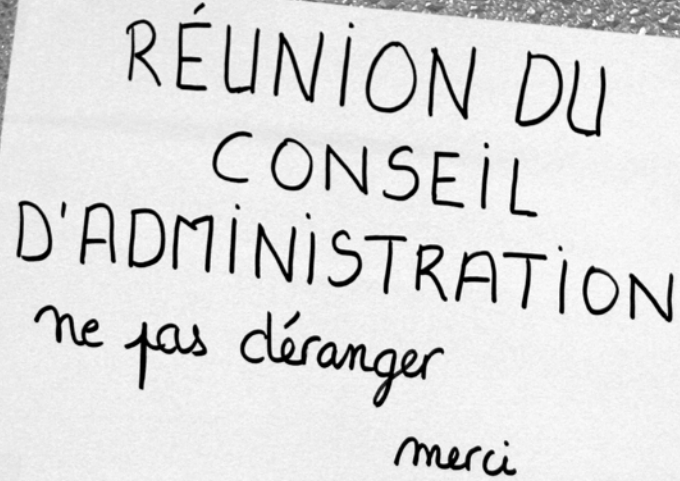 RÉUNION DU
CONSEIL
D'ADMINISTRATION
ne pas déranger
merci